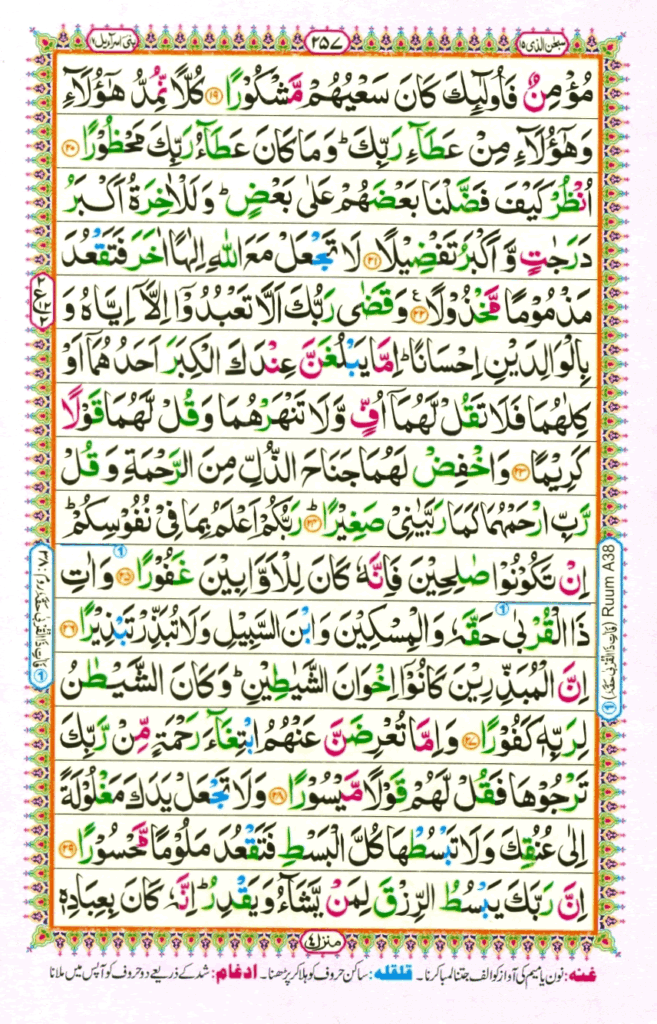 سبحن الذی ۱۵
۲۵۷
بنی اسرآءیل ۱۷
مُؤْمِنٌ فَاُولٰٓئِكَ كَانَ سَعْیُهُمْ مَّشْكُوْرًا ۱۹ كُلًّا نُّمِدُّ هٰۤؤُلَآءِ
وَهٰۤؤُلَآءِ مِنْ عَطَآءِ رَبِّكَ ؕ وَمَا كَانَ عَطَآءُ رَبِّكَ مَحْظُوْرًا ۲۰
اُنْظُرْ كَیْفَ فَضَّلْنَا بَعْضَهُمْ عَلٰی بَعْضٍ ؕ وَلَلْاٰخِرَةُ اَكْبَرُ
دَرَجٰتٍ وَّاَكْبَرُ تَفْضِیْلًا ۲۱ لَا تَجْعَلْ مَعَ اللّٰهِ اِلٰهًا اٰخَرَ فَتَقْعُدَ
مَذْمُوْمًا مَّخْذُوْلًا ۲۲ ع وَقَضٰی رَبُّكَ اَلَّا تَعْبُدُوْۤا اِلَّاۤ اِیَّاهُ وَ
بِالْوَالِدَیْنِ اِحْسَانًا ؕ اِمَّا یَبْلُغَنَّ عِنْدَكَ الْكِبَرَ اَحَدُهُمَاۤ اَوْ
كِلٰهُمَا فَلَا تَقُلْ لَّهُمَاۤ اُفٍّ وَّلَا تَنْهَرْهُمَا وَقُلْ لَّهُمَا قَوْلًا
كَرِیْمًا ۲۳ وَاخْفِضْ لَهُمَا جَنَاحَ الذُّلِّ مِنَ الرَّحْمَةِ وَقُلْ
رَّبِّ ارْحَمْهُمَا كَمَا رَبَّیٰنِیْ صَغِیْرًا ؕ ۲۴ رَبُّكُمْ اَعْلَمُ بِمَا فِیْ نُفُوْسِكُمْ ؕ
اِنْ تَكُوْنُوْا صٰلِحِیْنَ فَاِنَّهٗ كَانَ لِلْاَوَّابِیْنَ غَفُوْرًا ۲۵ وَاٰتِ
ذَا الْقُرْبٰی حَقَّهٗ وَالْمِسْكِیْنَ وَابْنَ السَّبِیْلِ وَلَا تُبَذِّرْ تَبْذِیْرًا ۲۶
اِنَّ الْمُبَذِّرِیْنَ كَانُوْۤا اِخْوَانَ الشَّیٰطِیْنِ ؕ وَكَانَ الشَّیْطٰنُ
لِرَبِّهٖ كَفُوْرًا ۲۷ وَاِمَّا تُعْرِضَنَّ عَنْهُمُ ابْتِغَآءَ رَحْمَةٍ مِّنْ رَّبِّكَ
تَرْجُوْهَا فَقُلْ لَّهُمْ قَوْلًا مَّیْسُوْرًا ۲۸ وَلَا تَجْعَلْ یَدَكَ مَغْلُوْلَةً
اِلٰی عُنُقِكَ وَلَا تَبْسُطْهَا كُلَّ الْبَسْطِ فَتَقْعُدَ مَلُوْمًا مَّحْسُوْرًا ۲۹
اِنَّ رَبَّكَ یَبْسُطُ الرِّزْقَ لِمَنْ یَّشَآءُ وَیَقْدِرُ ؕ اِنَّهٗ كَانَ بِعِبَادِهٖ
منزل ۴
① (فَاٰتِ ذَا الْقُرْبٰی حَقَّهٗ) Ruum A38
① فَاٰتِ ذَا الْقُرْبٰی حَقَّهٗ روم اٰ: ۳۸
غنه: نون یا میم کی آواز کو الف جتنا لمبا کرنا۔ قلقله: ساکن حروف کو ہلا کر پڑھنا۔ ادغام: شد کے ذریعے دو حروف کو آپس میں ملانا